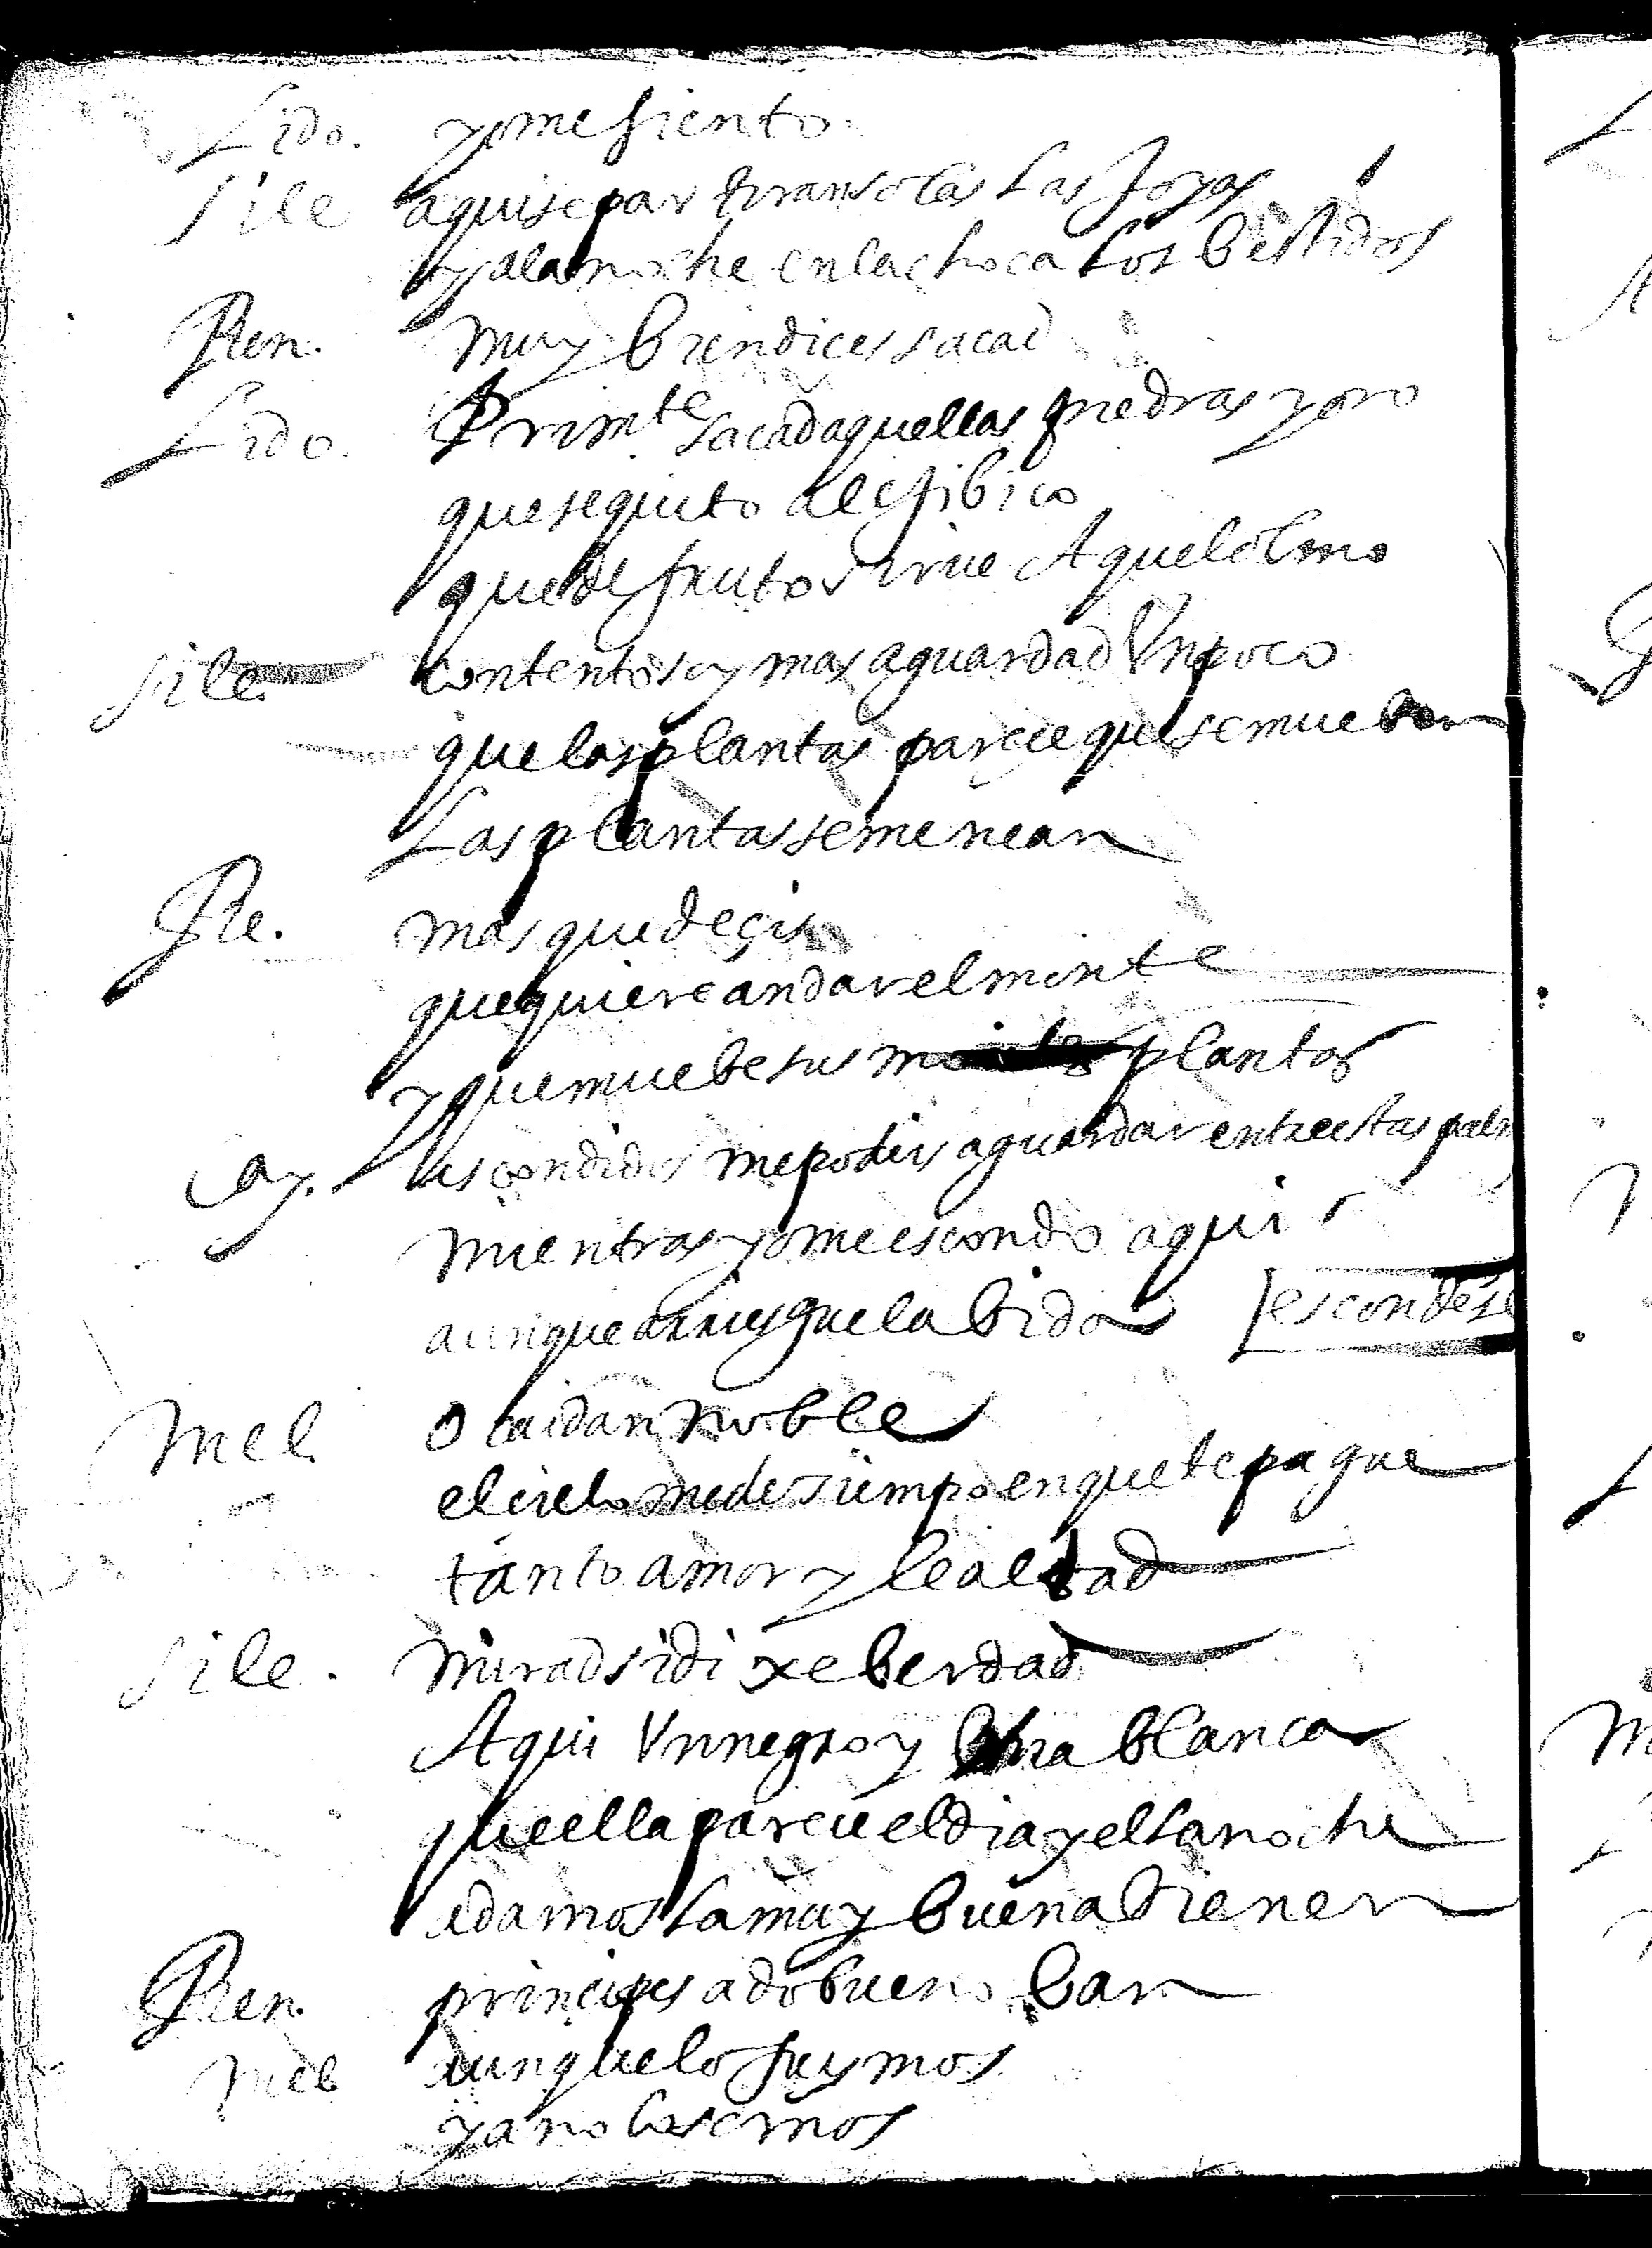 Lido. yo me siento
Sile aqui se partiran solas las Joyas
y a la noche en la choca los bestidos
Ren. muy bien dices sacad
Lido. Primte sacad aquellas piedras y oro
que se quito al
que de fruto sirve Aquel olmo
Sile. contento soy mas aguardad Un poco
que las plantas parece que se mueben
Las plantas se menean
Re. mas que decis
que quiere andar el monte
y que muebe sus plantas
Cay. escondidos me podeis aguardar entre estas palm
mientras yo me escondo aqui
aunque arriesgue la bida [escondese
Mel. O caidan noble
el cielo me de tiempo en que te pague
tanto amor y lealtad
Sile. mirad si dixe berdad
Aqui Un negro y Una blanca
que ella parece el dia y el la noche
a damos la muy buena bienen
Ren. principes a do bueno ban
Mel aunque lo fuymos
ya no lo semos